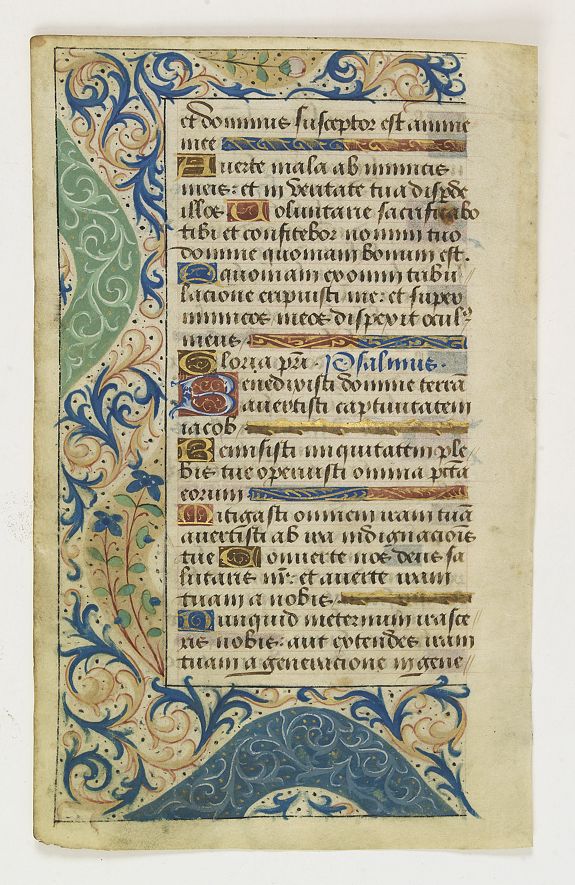 et dominus susceptor est anime
mee
Auerte mala ab inimicis
meis: et in veritate tua disp̱de
illos Voluntarie sacrificabo
tibi et confitebor nomini tuo
domine quoniam bonum est.
Quoniam ex omni tribu
lacione eripuisti me: et super
inimicos meos despexit ocul⁹
meus.
Gloria p̄ri. Psalmus.
Benedixisti domine terrā
auertisti captiuitatem
iacob
Remisisti iniquitatem ple
bis tue operuisti omnia pc̄ta
eorum
Mitigasti omnem iram tuā
auertisti ab ira indignacionis
tue Conuerte nos deus sa
lutaris nr̄: et auerte iram
tuam a nobis
Nunquid ineternum irasce
ris nobis: aut extendes iram
tuam a generacione in gene